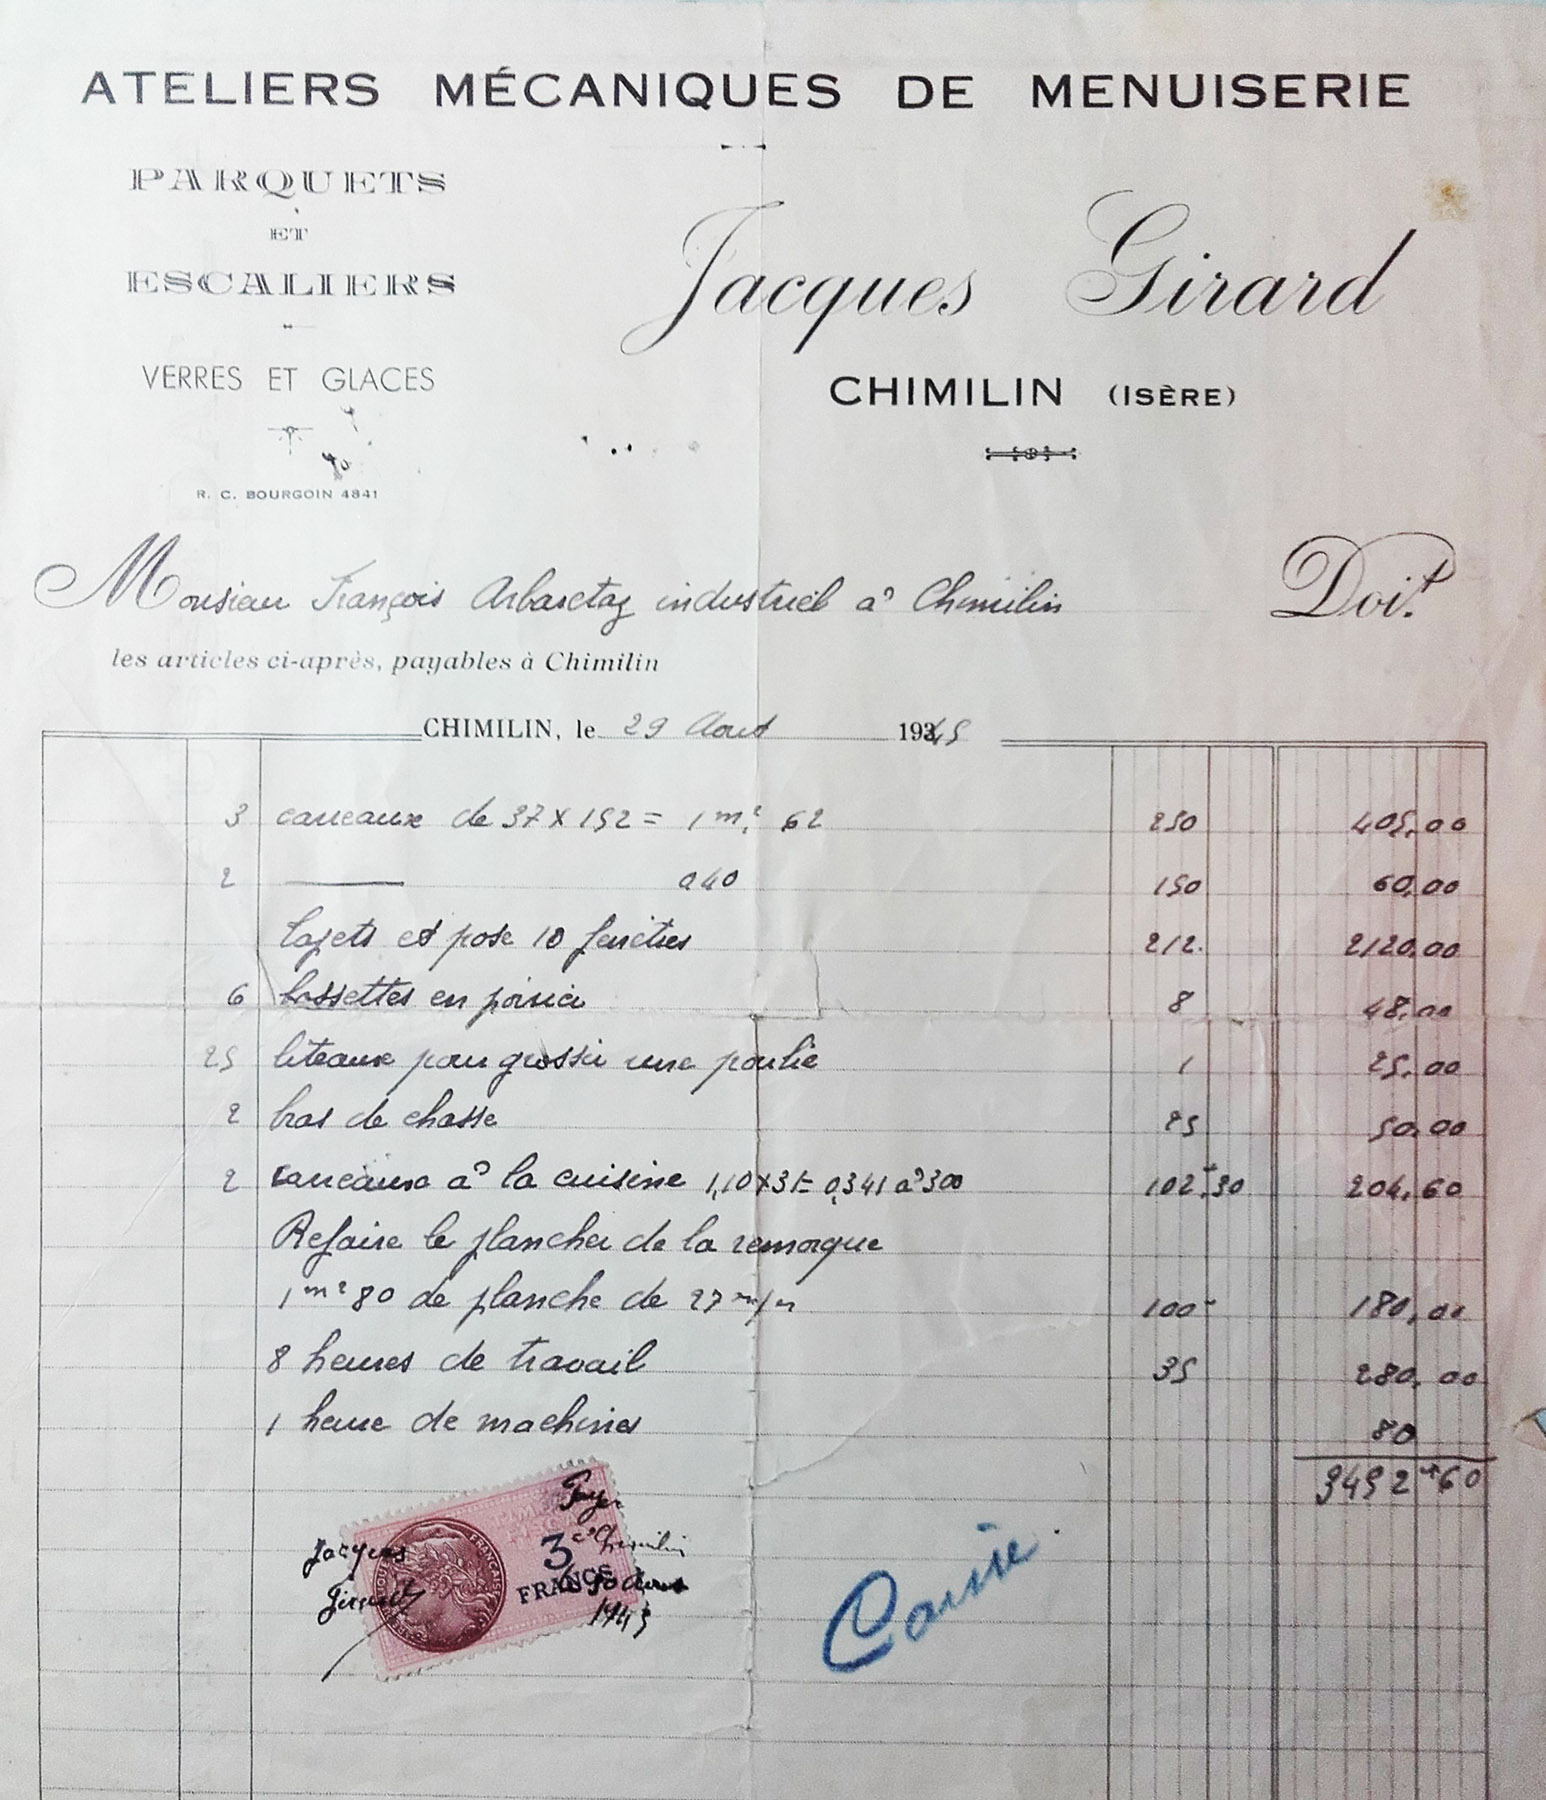 ATELIERS MÉCANIQUES DE MENUISERIE
PARQUETS
ET
ESCALIERS
VERRES ET GLACES
R. C. BOURGOIN 4841
Jacques Girard
CHIMILIN (ISÈRE)
Monsieur François Arbaretaz industriel à Chimilin Doit
les articles ci-après, payables à Chimilin
CHIMILIN, le 29 Aout 1945
3 carreaux de 37 x 152 = 1 m² 62 250 405,00
2 —— 0 40 150 60,00
et pose 10 fenêtres 212. 2120,00
6 en 8 48,00
25 liteaux pour grossir une poulie 1 25,00
2 bras de chasse 25 50,00
2 carreaux à la cuisine 1,10 x 31 = 0,341 à 300 102,30 204,60
Refaire le plancher de la remorque
1 m² 80 de planche de 27 m/m 100 180,00
8 heures de travail 35 280,00
1 heure de machines 80
3452,60
Jacques
Girard
3
FRANCS
Payer
Chimilin
1945
Caisse